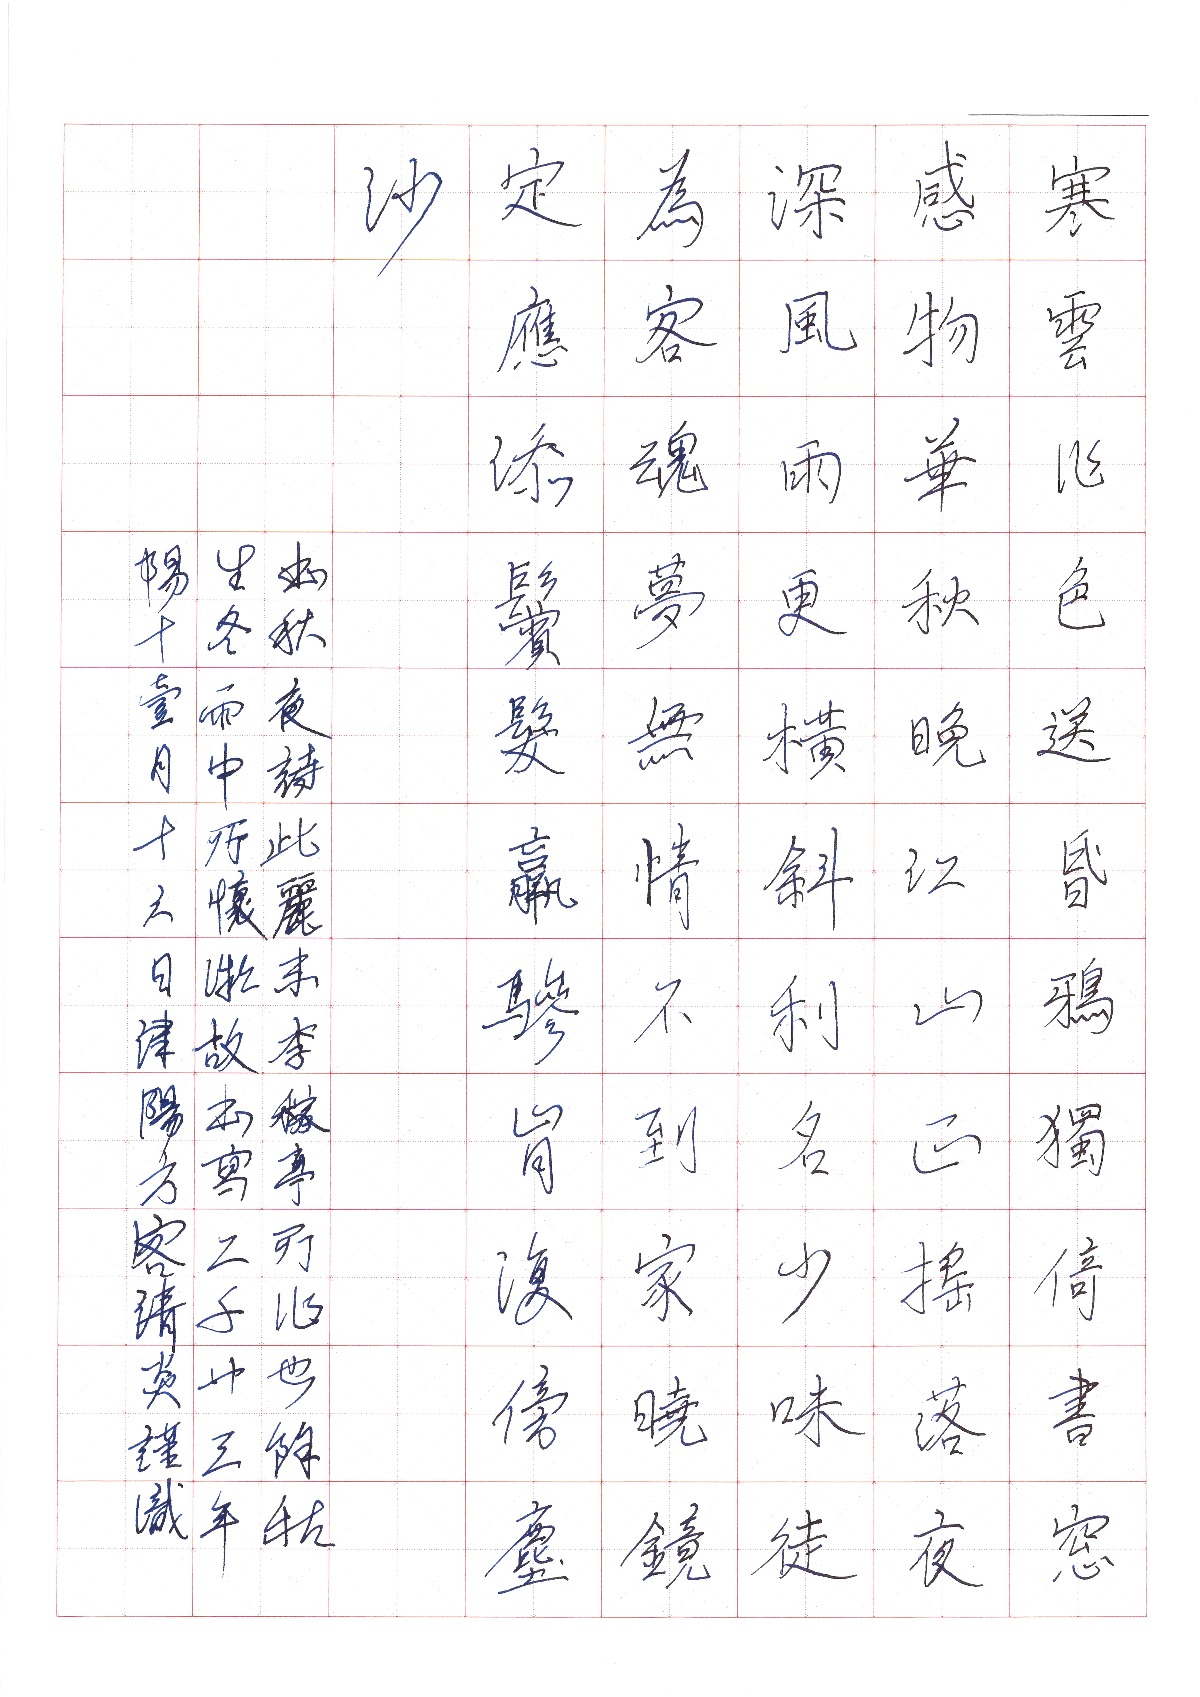 寒雲作色送昏鴉獨倚書窓
感物華秋晚江山正搖落夜
深風雨更橫斜利名少味徒
為客魂夢無情不到家曉鏡
定應添鬢髮羸驂肯復傍塵
沙
書秋夜詩此麗末李稼亭所作也餘
生冬雨中所懷故書寫二千卄三年
陽十壹月十六日津陽方客靖炎謹識